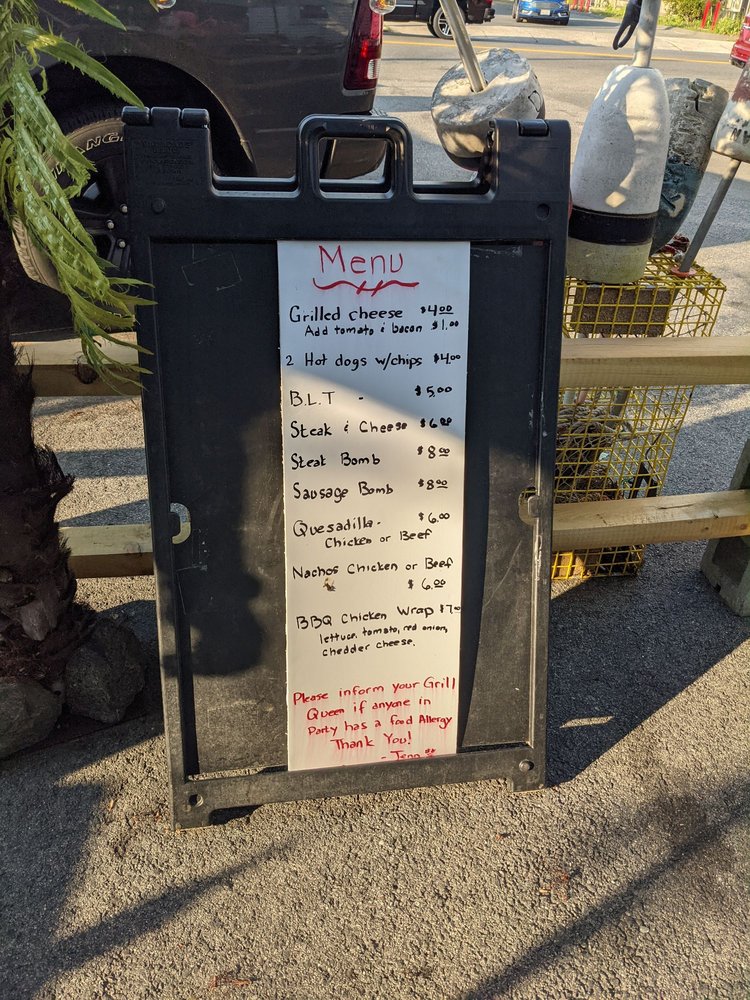 Menu
Grilled cheese $4.00
Add tomato & bacon $1.00
2 Hot dogs w/chips $4.00
B.L.T - $5.00
Steak & Cheese $6.00
Steak Bomb $8.00
Sausage Bomb $8.00
Quesadilla - $6.00
Chicken or Beef
Nachos Chicken or Beef
$6.00
BBQ Chicken Wrap $7.00
lettuce, tomato, red onion,
chedder cheese.
Please inform your Grill
Queen if anyone in
Party has a food Allergy
Thank You!
- Jenn